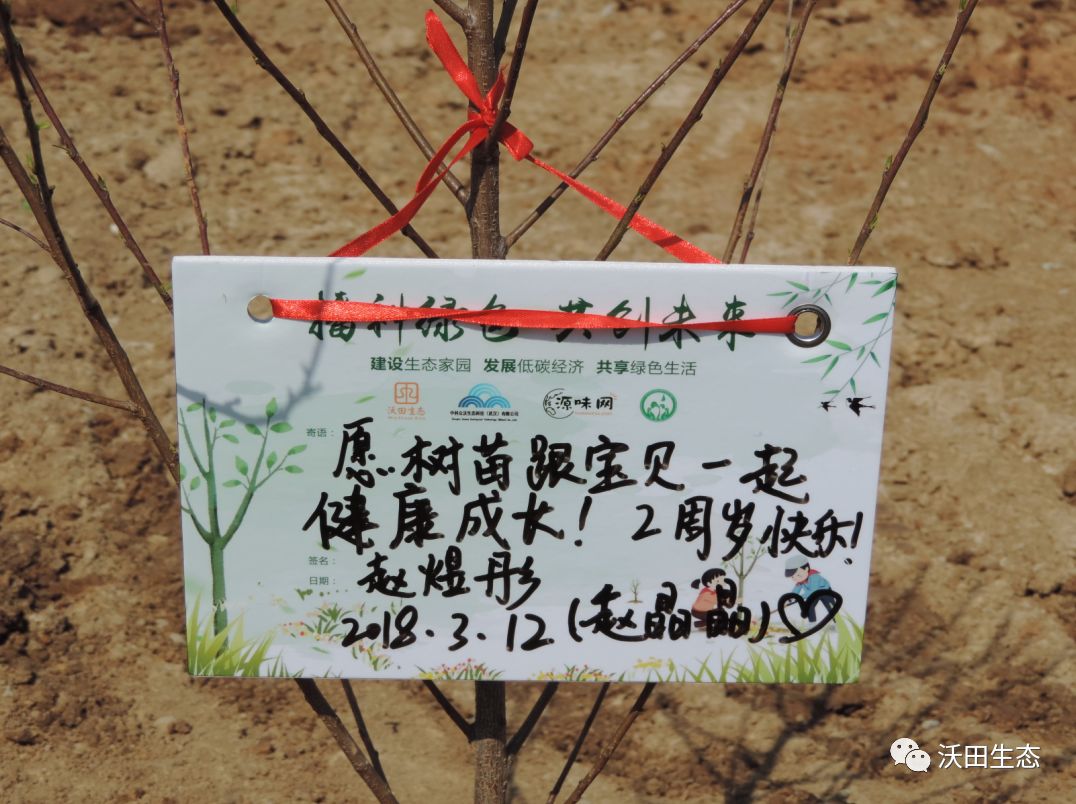 播种绿色 共创未来
建设生态家园 发展低碳经济 共享绿色生活
沃田生态
源味网
寄语：
愿树苗跟宝贝一起
健康成长！2周岁快乐！
签名：
赵煜彤
日期：
2018.3.12 (赵晶晶)
沃田生态